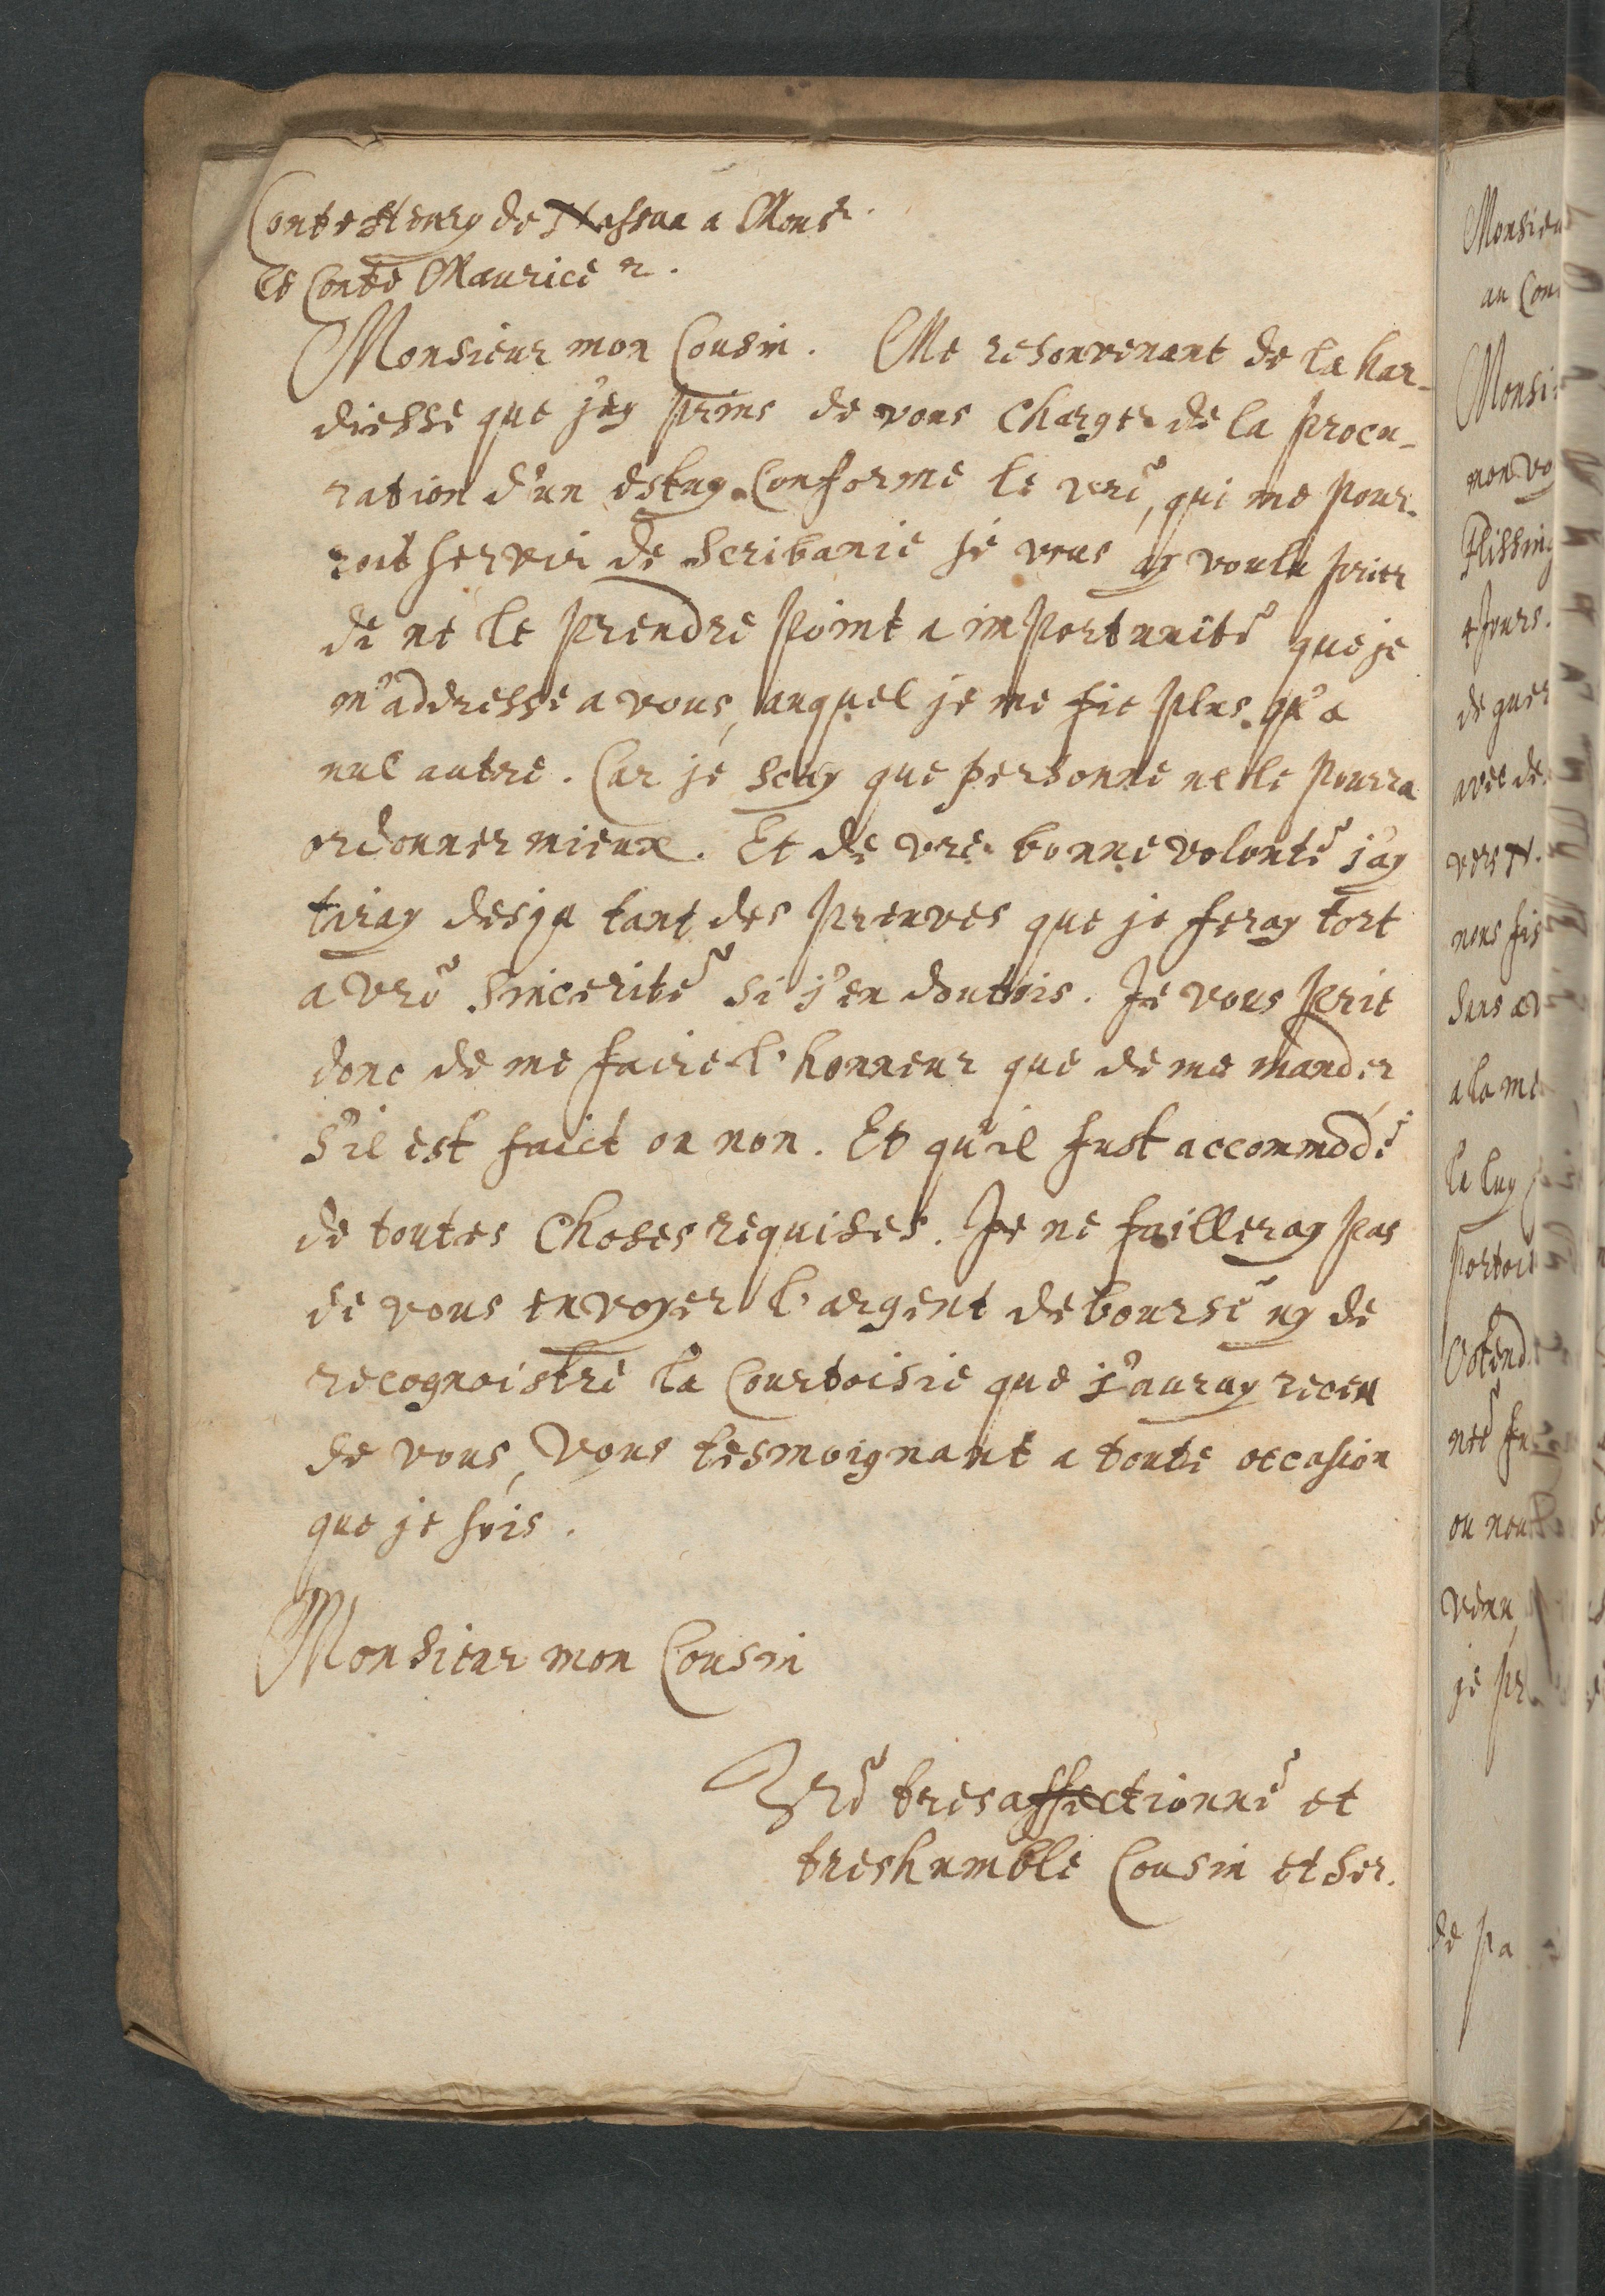 Conte Henry de Nassau a Monsr.
le Conte Maurice
Monsieur mon Cousin. Me resouvenant de la har-
diesse que j'ay prins de vous charger de la procu-
ration d'un estuy Conforme le vrẽ, qui me pour-
roit servir de Scribanie je vous ay voulu prier
de ne le prendre point a importunité que je
m'addresse a vous, auquel je me fie plus qu'a
nul autre. Car je scay que personne ne le pourra
ordonner mieux. Et de vre bonne volonté j'ay
tiray desja tant des preuves que je feray tort
a vrẽ sincerité si j'en doutois. Je vous prie
donc de me faire l'honneur que de me mander
s'il est faict ou non. Et qu'il fust accommodé
de toutes choses requises. Je ne failleray pas
de vous envoyer l'argent deboursé ny de
recognoistre la Courtoisie que j'auray receu
de vous, Vous tesmoignant a toute occasion
que je suis.
Monsieur mon Cousin
Vrẽ tresaffectionné et
treshumble Cousin et ser.
Monsieu
au Con
Monsi
mon vo
Flissing
4 jours.
de guer
avec de
vers N.
nous fis
dans
a la me
le luy
portoit
Ostend
ou nou
venu
je pr
de pa